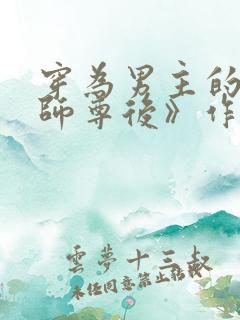 穿為男主的
師尊後》作
雲夢十三叔
未經同意禁止轉載